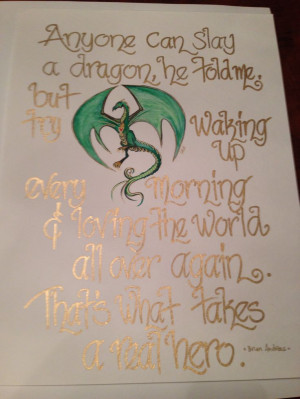 Anyone can slay
a dragon, he told me,
but
try waking
up
every morning
& loving the world
all over again.
That's what takes
a real hero.